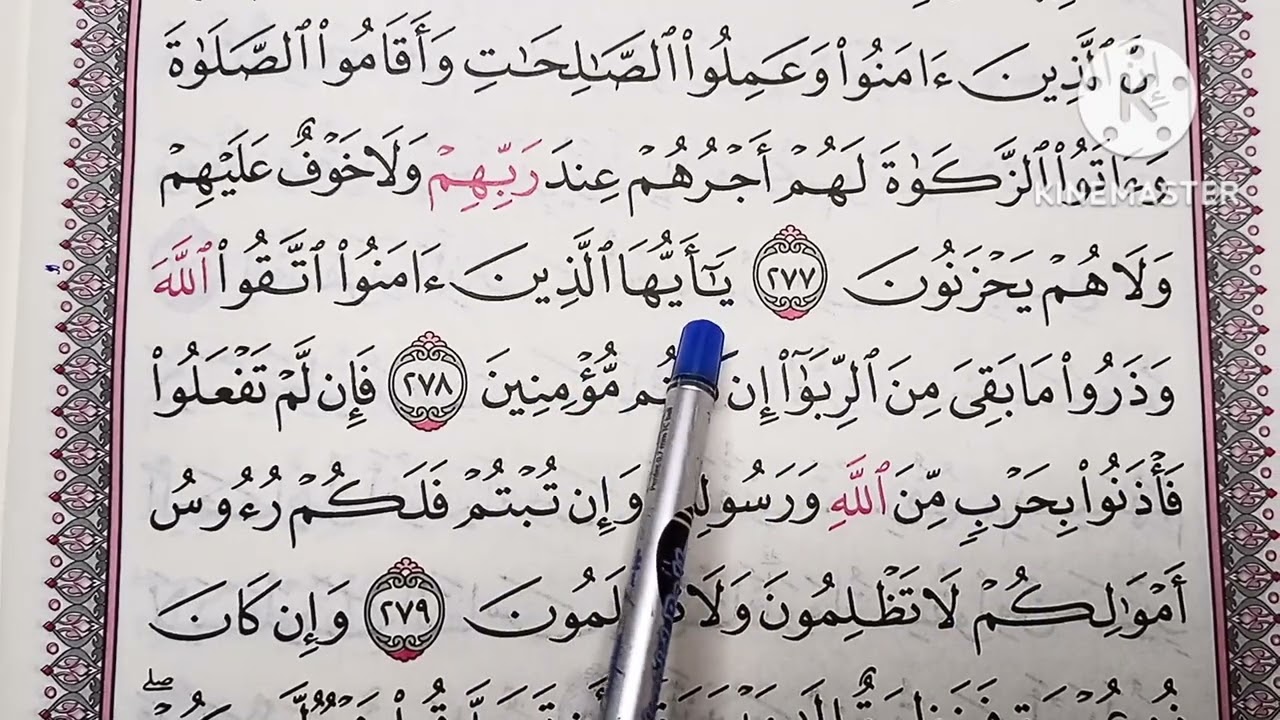 ٱلَّذِينَ ءَامَنُوا۟ وَعَمِلُوا۟ ٱلصَّـٰلِحَـٰتِ وَأَقَامُوا۟ ٱلصَّلَوٰةَ
وَءَاتَوُا۟ ٱلزَّكَوٰةَ لَهُمْ أَجْرُهُمْ عِندَ رَبِّهِمْ وَلَا خَوْفٌ عَلَيْهِمْ
KINEMASTER
وَلَا هُمْ يَحْزَنُونَ ٢٧٧ يَـٰٓأَيُّهَا ٱلَّذِينَ ءَامَنُوا۟ ٱتَّقُوا۟ ٱللَّهَ
وَذَرُوا۟ مَا بَقِىَ مِنَ ٱلرِّبَوٰٓا۟ إِن مُّؤْمِنِينَ ٢٧٨ فَإِن لَّمْ تَفْعَلُوا۟
فَأْذَنُوا۟ بِحَرْبٍ مِّنَ ٱللَّهِ وَرَسُولِ وَإِن تُبْتُمْ فَلَكُمْ رُءُوسُ
أَمْوَٰلِكُمْ لَا تَظْلِمُونَ وَلَا ٢٧٩ وَإِن كَانَ